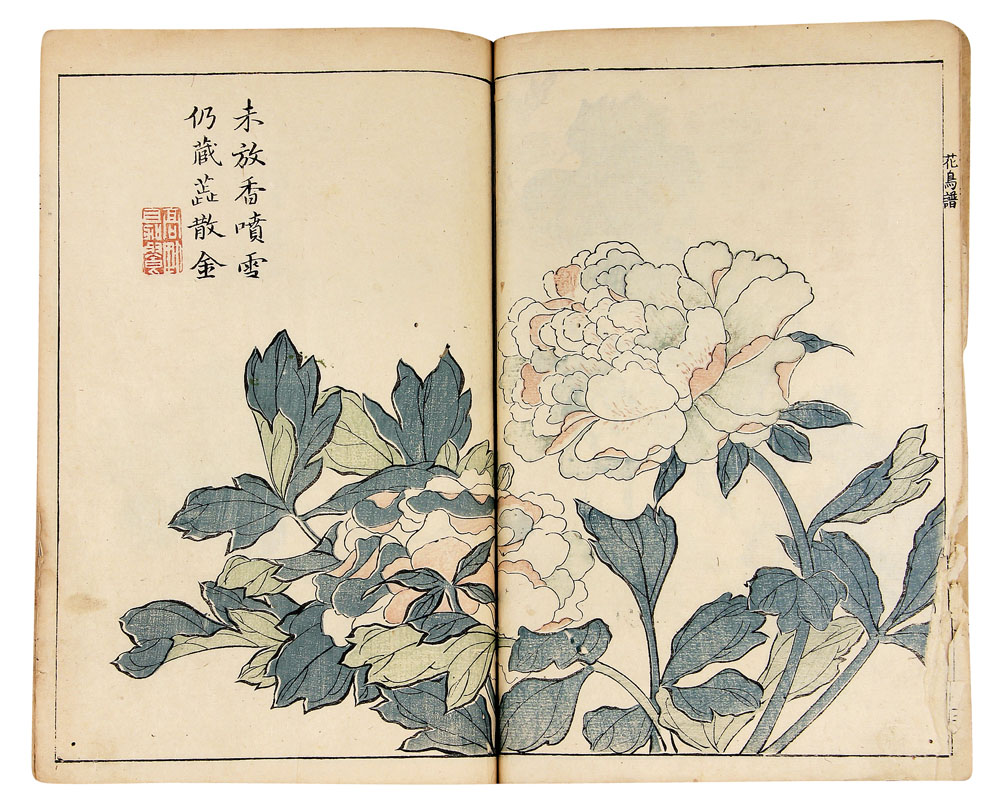 花鳥譜
未放香噴雪
仍藏蕋散金